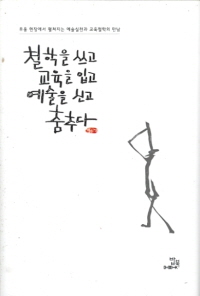 무용 현장에서 펼쳐지는 예술실천과 교육철학의 만남
철학을 쓰고
교육을 입고
예술을 신고
춤추다